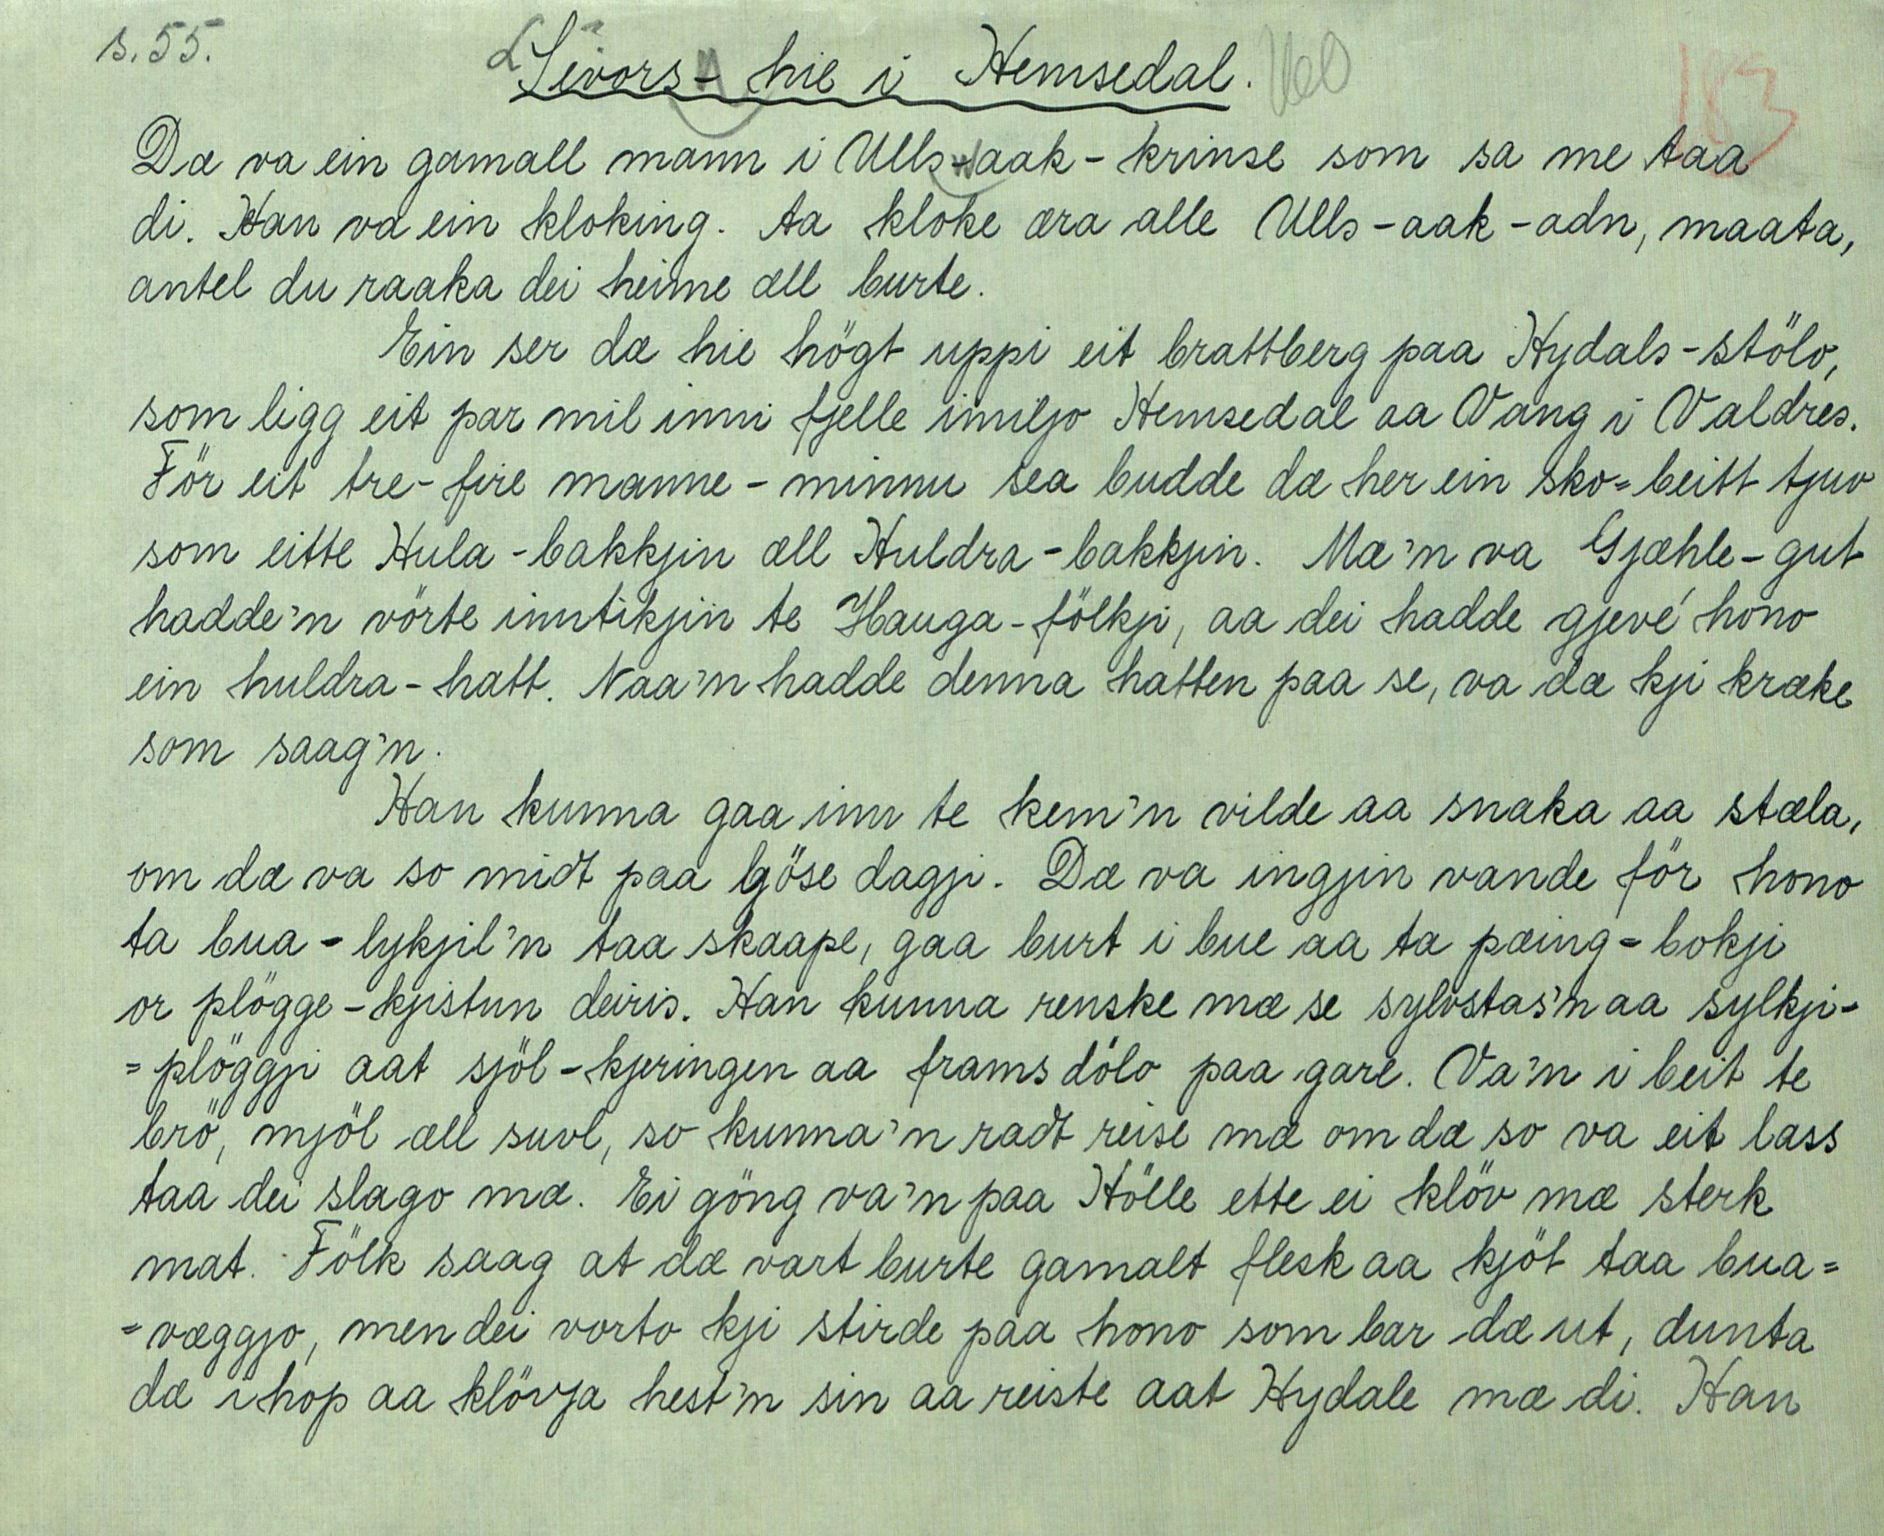 s. 55.
Sevors- hie i Hemsedal.
183
Dæ va ein gamall mann i Ulls-aak-krinse som sa me taa
di. Han va ein kloking. Aa kloke æra alle Ulls-aak-adn, maata,
antel du raaka dei heime æll burte.
Ein ser dæ hie högt uppi eit brattberg paa Hydals-stölo,
som ligg eit par mil inni fjelle imiljo Hemsedal aa Vang i Valdres.
För eit tre-fire manne-minnu sea budde dæ her ein sko-beitt tjuv
som eitte Hula-bakkjin æll Huldra-bakkjin. Mæ'n va Gjæhle-gut
hadde'n vörte inntikjin te Hauga-fölkji, aa dei hadde gjevé hono
ein huldra-hatt. Naa'n hadde denna hatten paa se, va dæ kji kræke
som saag'n.
Han kunna gaa inn te kem'n vilde aa snaka aa stæla,
om dæ va so midt paa ljöse dagji. Dæ va ingjin vande för hono
ta bua-lykjil'n taa skaape, gaa burt i bue aa ta pæing-bokji
or plögge-kjistun deiris. Han kunna renske mæ se sylvstas'n aa sylkji-
=plöggji aat sjöl-kjeringen aa framsdölo paa gare. Va'n i beit te
brö, mjöl æll suvl, so kunna'n radt reise mæ om dæ so va eit lass
taa dei slago mæ. Ei göng va'n paa Hölle ette ei klöv mæ sterk
mat. Fölk saag at dæ vart burte gamalt flesk aa kjöt taa bua=
=væggjo, men dei vorto kji stirde paa hono som bar dæ ut, dunta
dæ ihop aa klövja hest'n sin aa reiste aat Hydale mæ di. Han